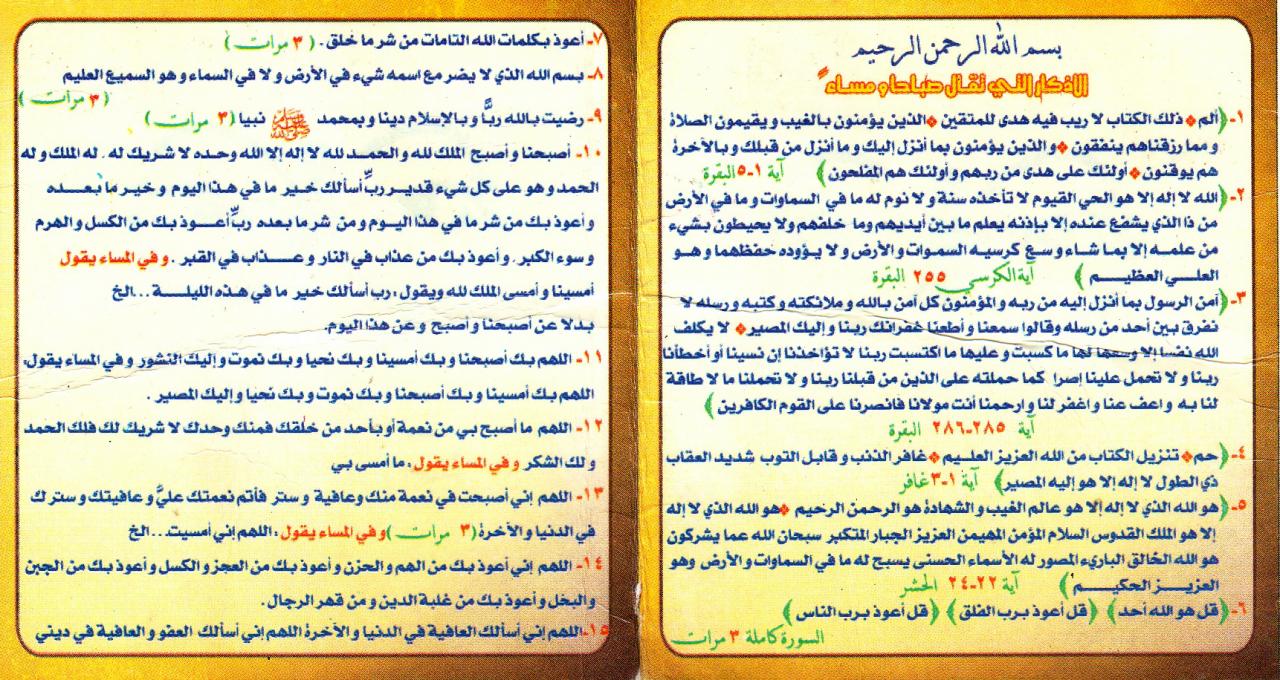 بسم الله الرحمن الرحيم
الأذكار التي تقال صباحا و مساءً
١- ﴿ألم * ذلك الكتاب لا ريب فيه هدى للمتقين * الذين يؤمنون بالغيب و يقيمون الصلاة
و مما رزقناهم ينفقون * و الذين يؤمنون بما أنزل إليك و ما أنزل من قبلك و بالآخرة
هم يوقنون * أولئك على هدى من ربهم و أولئك هم المفلحون﴾ آية ١-٥ البقرة
٢- ﴿الله لا إله إلا هو الحي القيوم لا تأخذه سنة و لا نوم له ما في السماوات و ما في الأرض
من ذا الذي يشفع عنده إلا بإذنه يعلم ما بين أيديهم وما خلفهم ولا يحيطون بشيء
من علمه إلا بما شاء و سع كرسيه السموات و الأرض و لا يؤوده حفظهما و هو
العلي العظيم ﴾ آية الكرسي ٢٥٥ البقرة
٣- ﴿آمن الرسول بما أنزل إليه من ربه و المؤمنون كل آمن بالله و ملائكته و كتبه و رسله لا
نفرق بين أحد من رسله وقالوا سمعنا و أطعنا غفرانك ربنا و إليك المصير * لا يكلف
الله نفسا إلا وسعها لها ما كسبت و عليها ما اكتسبت ربنا لا تؤاخذنا إن نسينا أو أخطأنا
ربنا و لا تحمل علينا إصرا كما حملته على الذين من قبلنا ربنا و لا تحملنا ما لا طاقة
لنا به و اعف عنا و اغفر لنا و ارحمنا أنت مولانا فانصرنا على القوم الكافرين ﴾
آية ٢٨٥-٢٨٦ البقرة
٤- ﴿حم * تنزيل الكتاب من الله العزيز العليم * غافر الذنب و قابل التوب شديد العقاب
ذي الطول لا إله إلا هو إليه المصير﴾ آية ١-٣ غافر
٥- ﴿هو الله الذي لا إله إلا هو عالم الغيب و الشهادة هو الرحمن الرحيم * هو الله الذي لا إله
إلا هو الملك القدوس السلام المؤمن المهيمن العزيز الجبار المتكبر سبحان الله عما يشركون
هو الله الخالق الباريء المصور له الأسماء الحسنى يسبح له ما في السماوات و الأرض وهو
العزيز الحكيم ﴾ آية ٢٢-٢٤ الحشر
٦- ﴿قل هو الله أحد﴾ ﴿قل أعوذ برب الفلق﴾ ﴿قل أعوذ برب الناس﴾
السورة كاملة ٣ مرات
٧- أعوذ بكلمات الله التامات من شر ما خلق . ( ٣ مرات )
٨- بسم الله الذي لا يضر مع اسمه شيء في الأرض و لا في السماء و هو السميع العليم
( ٣ مرات )
٩- رضيت بالله ربًّا و بالإسلام دينا و بمحمد ﷺ نبيا ( ٣ مرات )
١٠- أصبحنا و أصبح الملك لله و الحمد لله لا إله إلا الله وحده لا شريك له . له الملك و له
الحمد و هو على كل شيء قدير ربِّ أسألك خير ما في هذا اليوم و خير ما بعده
و أعوذ بك من شر ما في هذا اليوم و من شر ما بعده ربِّ أعوذ بك من الكسل و الهرم
و سوء الكبر . و أعوذ بك من عذاب في النار و عذاب في القبر . و في المساء يقول
أمسينا و أمسى الملك لله ويقول : رب أسألك خير ما في هذه الليلة ... الخ
بدلا عن أصبحنا و أصبح و عن هذا اليوم.
١١- اللهم بك أصبحنا و بك أمسينا و بك نحيا و بك نموت و إليك النشور و في المساء يقول:
اللهم بك أمسينا و بك أصبحنا و بك نموت و بك نحيا و إليك المصير .
١٢- اللهم ما أصبح بي من نعمة أو بأحد من خلقك فمنك وحدك لا شريك لك فلك الحمد
و لك الشكر و في المساء يقول : ما أمسى بي
١٣- اللهم إني أصبحت في نعمة منك و عافية و ستر فأتم نعمتك عليَّ و عافيتك و سترك
في الدنيا و الآخرة ( ٣ مرات ) و في المساء يقول : اللهم إني أمسيت ... الخ
١٤- اللهم إني أعوذ بك من الهم و الحزن و أعوذ بك من العجز و الكسل و أعوذ بك من الجبن
والبخل و أعوذ بك من غلبة الدين و من قهر الرجال.
١٥- اللهم إني أسألك العافية في الدنيا و الآخرة اللهم إني أسألك العفو و العافية في ديني